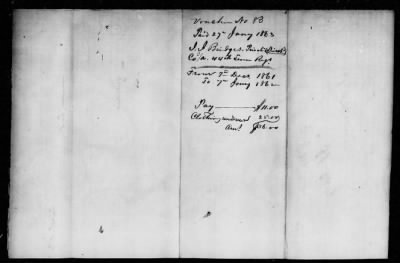 Voucher No 83
Paid 27 Jany 1863
J. J. Bridges. Privt
Co. A. 44th Tenn Regt
From 7th Decr 1861
To 7th Jany 1862
Pay $11.00
Clothing 25.00
Amt. $36.00